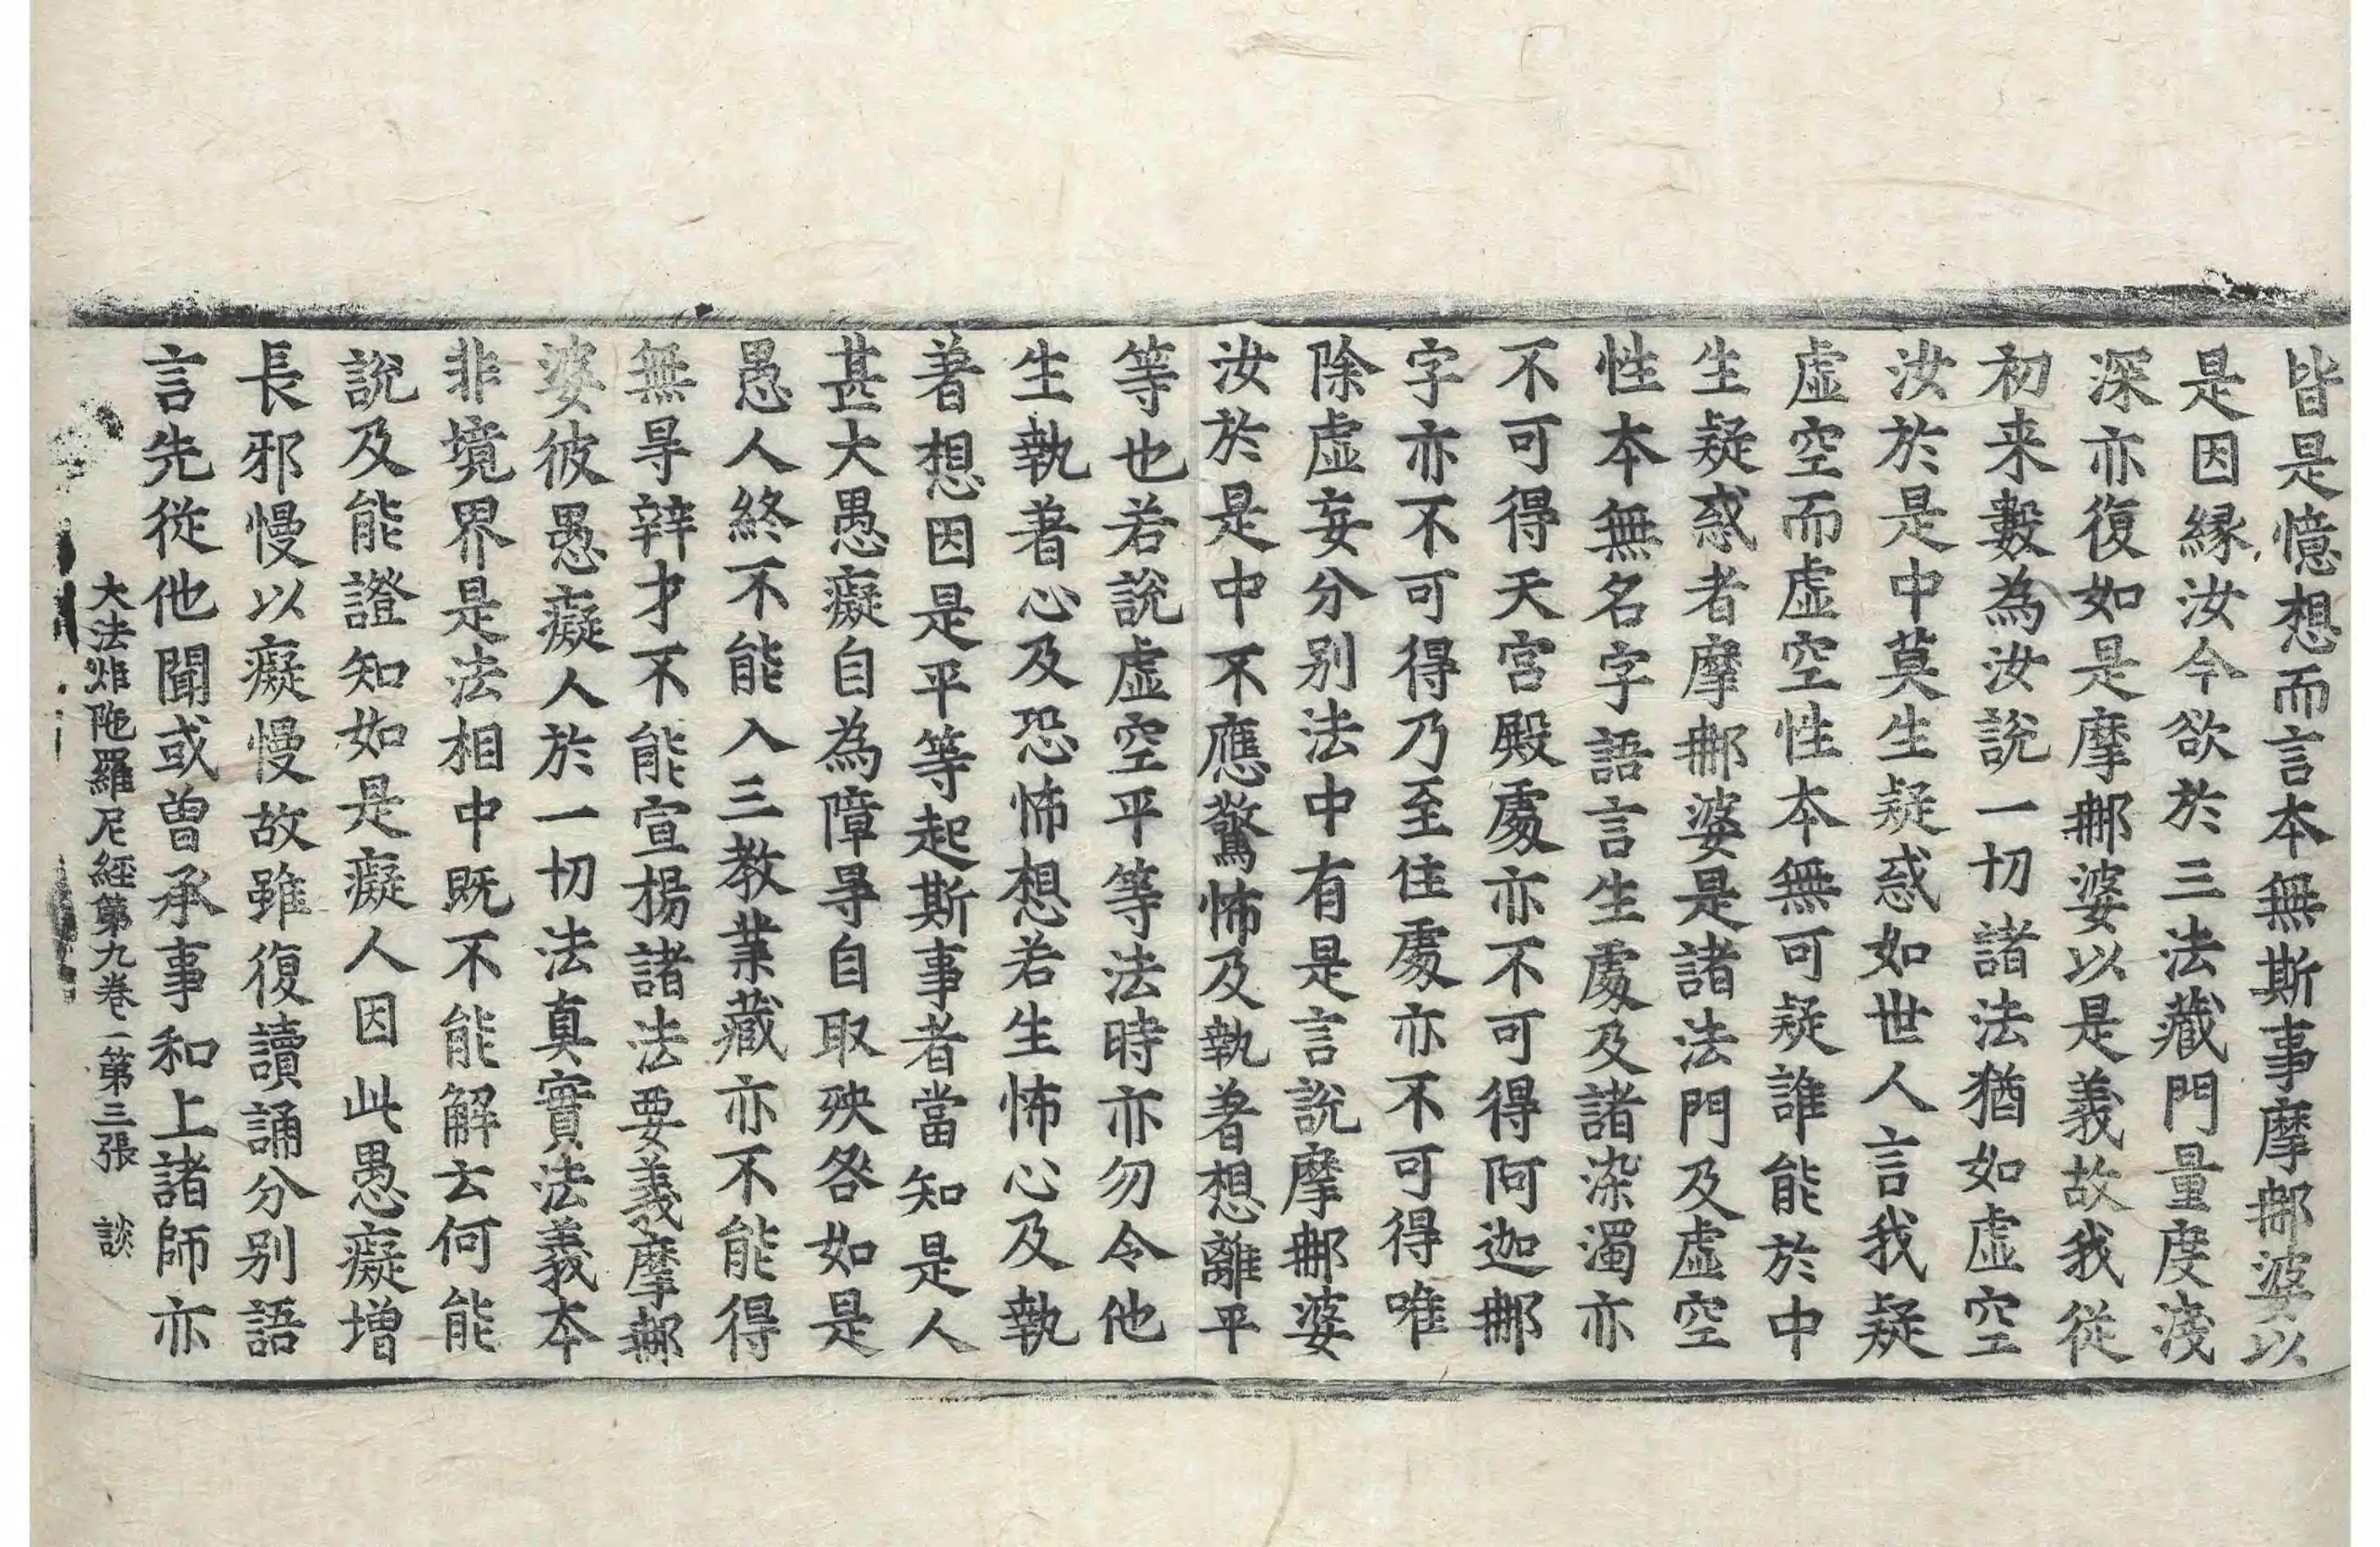 皆是憶想而言本無斯事摩䣯婆以
是因緣汝今欲於三法藏門量度淺
深亦復如是摩䣯婆以是義故我從
初来數為汝說一切諸法猶如虛空
汝於是中莫生疑惑如世人言我疑
虛空而虛空性本無可疑誰能於中
生疑惑者摩䣯婆是諸法門及虛空
性本無名字語言生處及諸染濁亦
不可得天宮殿處亦不可得阿迦䣯
字亦不可得乃至住處亦不可得唯
除虛妄分别法中有是言說摩䣯婆
汝於是中不應驚怖及執著想離平
等也若說虛空平等法時亦勿令他
生執著心及恐怖想若生怖心及執
著想因是平等起斯事者當知是人
甚大愚癡自為障㝵自取殃咎如是
愚人終不能入三教業藏亦不能得
無㝵辯才不能宣揚諸法要義摩䣯
婆彼愚癡人於一切法真實法義本
非境界是法相中既不能解云何能
說及能證知如是癡人因此愚癡增
長邪慢以癡慢故雖復讀誦分别語
言先從他聞或曾承事和上諸師亦
大法炬陁羅尼經第九卷 第三張 談